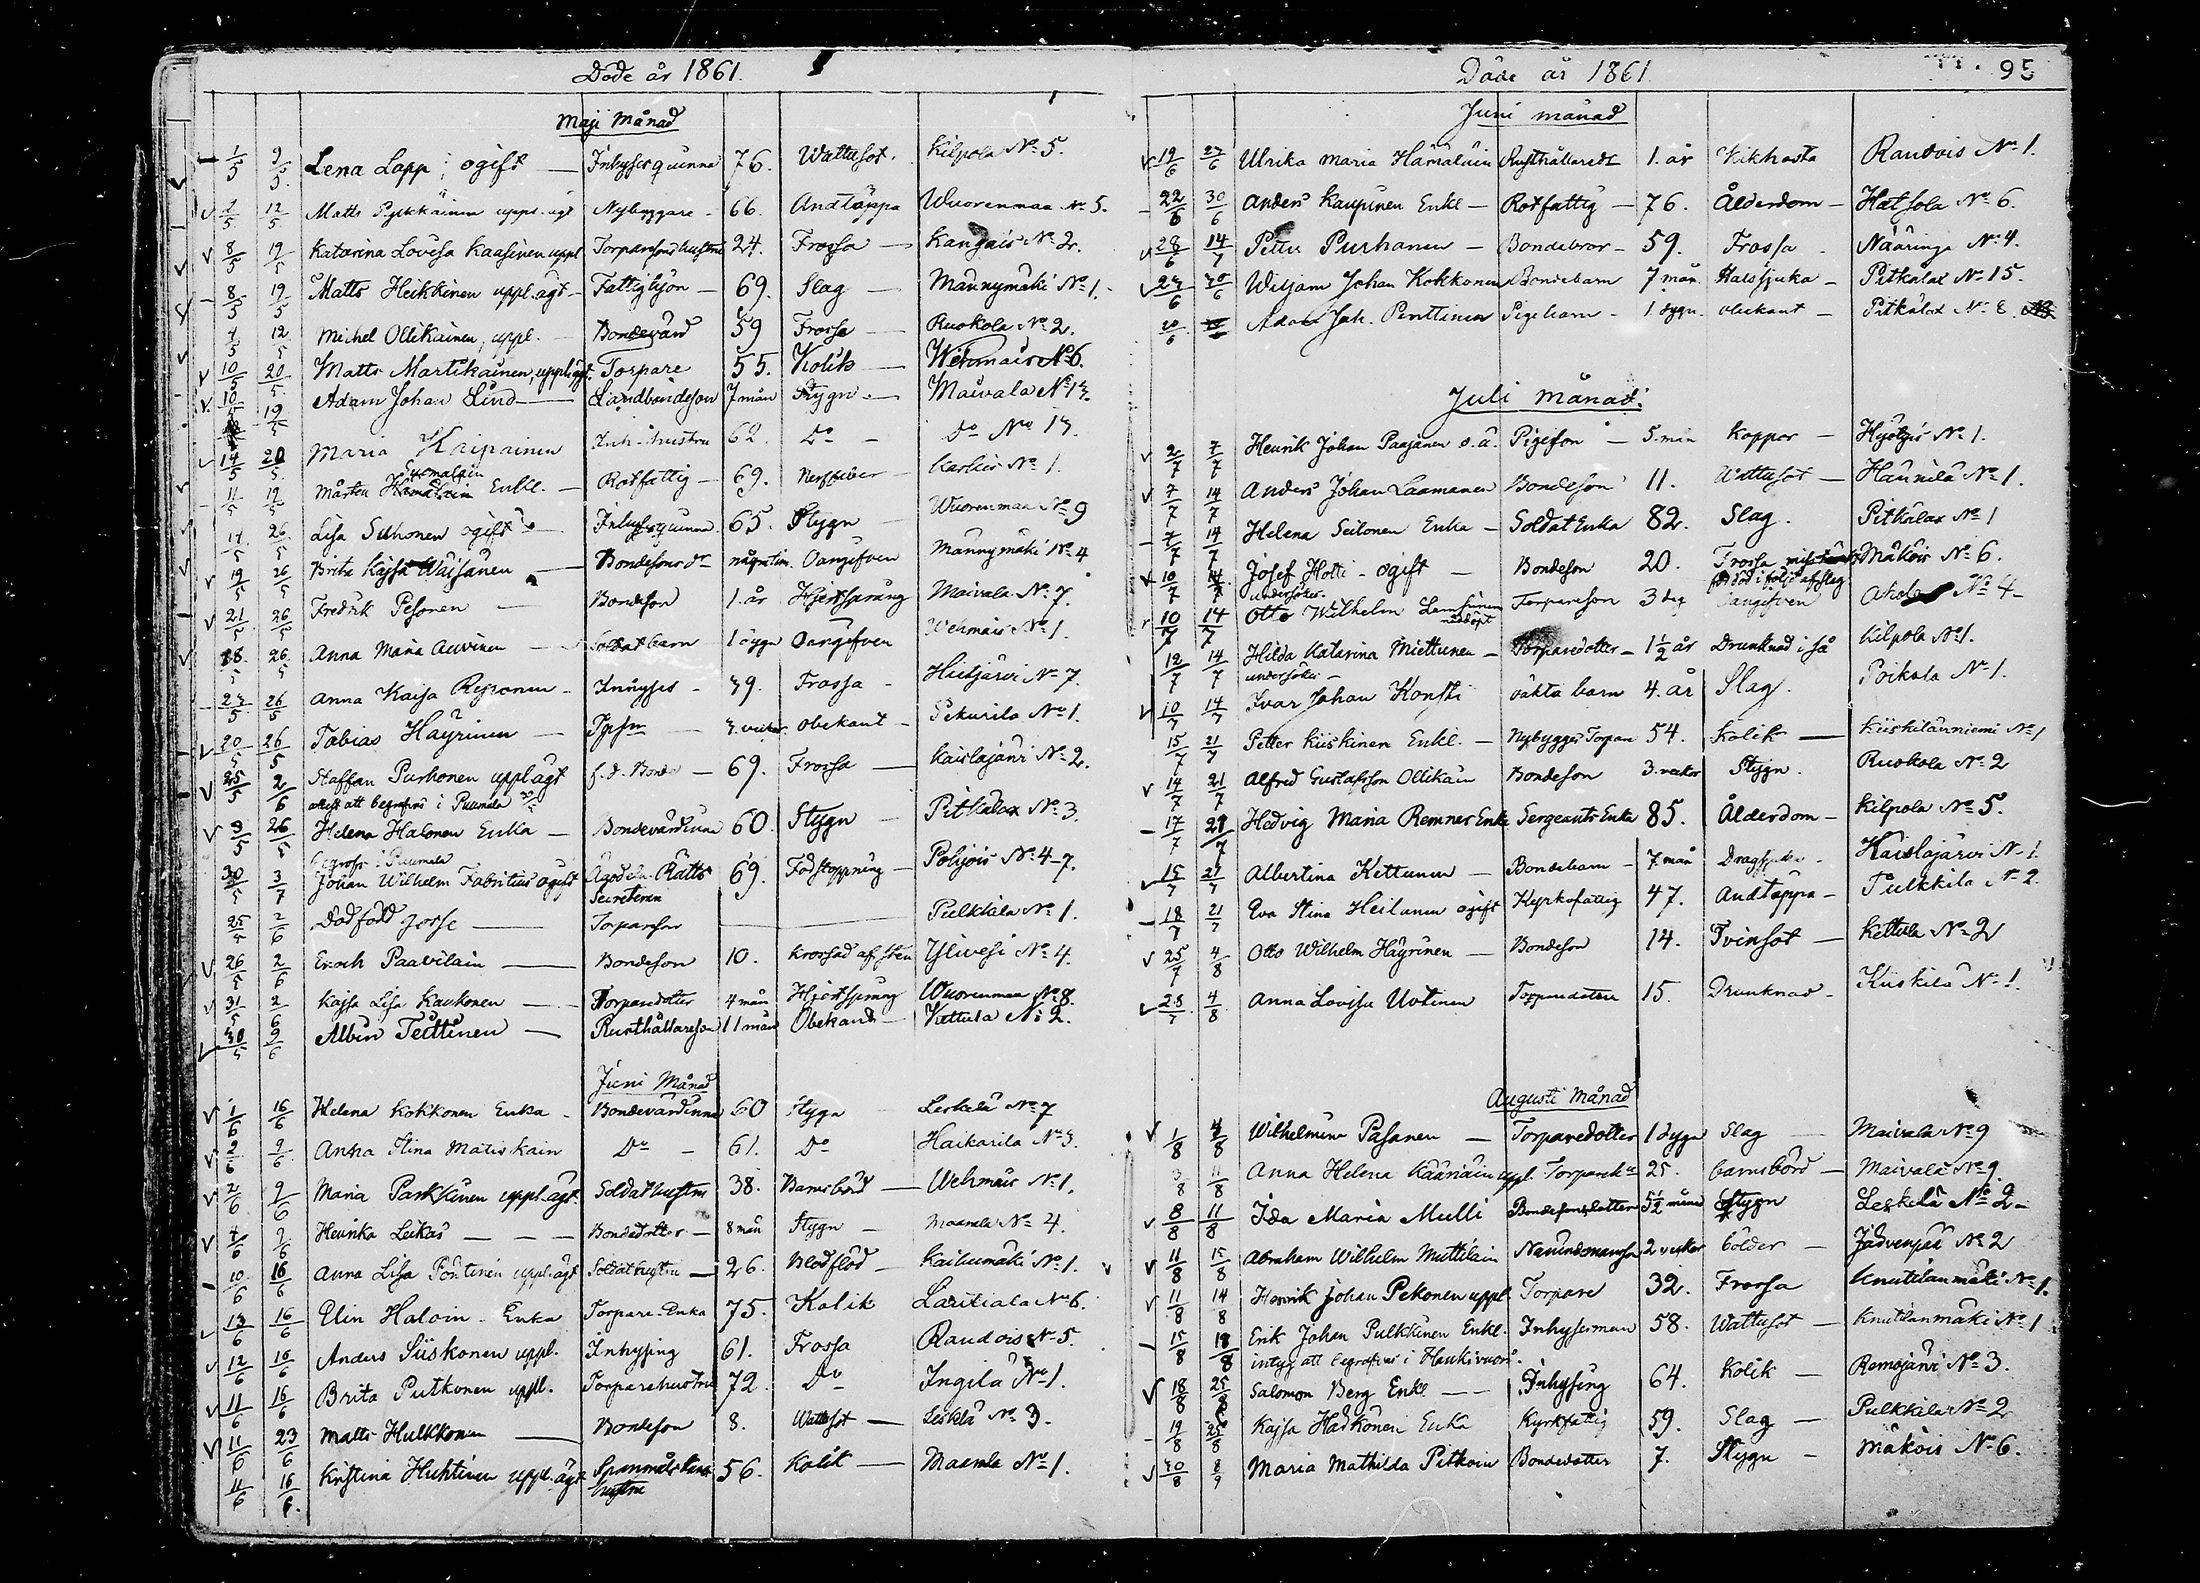 Döde år 1861.
Maji Månad
1/5 9/5 Lena Lapp; ogift Inhysesquinna 76. Wattusot. Kilpola No 5.
7/5 12/5 Matts Pykkäinen uppl. ägt Nybyggare 66. Andtäppa Wuorenmaa No 5.
8/5 19/5 Katarina Lovisa Kaasinen uppl Torparesonhustru 24. Frossa Kangais No 2.
8/5 19/5 Matts Heikkinen uppl. ägt Fattighjon 69. Slag Männymäki No 1.
4/5 12/5 Michel Ollikainen, uppl. Bondevärd 59 Frossa Ruokola No 2.
10/5 20/5 Matts Martikainen, uppl. ägt. Torpare 55. Kolik Wehmais No 6.
10/5 19/5 Adam Johan Lind Landbondeson 7 mån Stygn Maivala No 13.
14/5 20/5 Maria Kaipainen Inh. hustru 62. Do Do No 17.
11/5 19/5 Mårten Enkl. Rotfattig 69. Nerffeber Karlais No 1.
14/5 26/5 Lisa Suhonen ogift Inhysesquinna 65. Stygn Wuorenmaa No 9
19/5 26/5 Brita Kajsa Wäisänen Bondesonsdr några tim. Oangifven Männymäki No 4
21/5 26/5 Fredrik Pesonen Bondeson 1. år Hjertsprång Maivala No 7.
18/5 26/5 Anna Maria Auvinen Soldat barn 1 dygn Oangifven Wehmais No 1.
23/5 26/5 Anna Kaisa Reponen Inhyses 79. Frossa Hietajärvi No 7.
20/5 26/5 Tobias Häyrinen 3. veckor obekant Pekurila No 1.
25/5 2/6 Staffan Purhonen uppl. ägt f. d. Bonde 69. Frossa Kaislajärvi No 2.
attest att begrafvas i Puumala
9/5 26/5 Helena Halonen Enka Bondevärdinna 60. Stygn Pitkälax No 3.
begrafs i Puumala
30/5 3/7 Johan Wilhelm Fabritius ogift Ägodeln. Rätts Secreteren 69. Födstoppning Pohjois No 4-7.
25/5 2/6 Dödfödd gosse Torpareson Pulkkila No 1.
26/5 2/6 Enoch Paavilain Bondeson 10. Krossad af sten Ylivesi No 4.
31/5 2/6 Kajsa Lisa Kaukonen Torparedotter 4 mån Hjertsprång Wuorenmaa No 8.
30/5 9/6 Albin Teittinen Rusthållareson 11 mån Obekant Kettula No 2.
Juni Månad
1/6 16/6 Helena Kokkonen Enka Bondevärdinna 60 Stygn Leskelä No 7
2/6 9/6 Anna Stina Matiskain Do 61. Do Haikarila No 3.
2/6 9/6 Maria Parkkinen uppl. ägt. Soldat hustru 38. Barnsbörd Wehmais No 1.
4/6 9/6 Henrika Leikas Bondedotter 8 mån Stygn Maarala No 4.
10/6 16/6 Anna Lisa Pöntinen uppl. ägt Soldat hustru 26. Blodflöd No 1.
13/6 16/6 Elin Haloin Enka Torpare Enka 75. Kolik Lautiala No 6.
12/6 16/6 Anders Siiskonen uppl. Inhysing 61. Frossa Raudois No 5.
11/6 16/6 Brita Putkonen uppl. Torparehustru 72. Do Ingilä No 1.
11/6 23/6 Matts Hulkkonen Bondeson 8. Wattusot Leskelä No 3.
11/6 16/6 Kristina Huhtinen uppl. ägt hustru 56. Kolik Maarala No 1.
Döde år 1861. 95
Juni månad
19/6 27/6 Ulrika Maria Hämäläin Rusthållaredr 1. år Kikhosta Raudois No 1.
22/6 30/6 Anders Kaupinen Enkl Rotfattig 76. Ålderdom Hatsola No 6.
28/6 14/7 Petter Purhonen Bondebror 59. Frossa Nääringe No 4.
27/6 30/6 Wiljam Johan Kokkonen Bondebarn 7 mån Halssjuka Pitkälax No 15.
20/6 Adam Joh. Penttinen Pigebarn 1 dygn. obekant Pitkälax No 8.
Juli månad.
2/7 7/7 Henrik Johan Paajanen o. ä. Pigeson 5. mån Koppor Hyötyis No 1.
7/7 14/7 Anders Johan Laamanen Bondeson 11. Wattusot Hännilä No 1.
7/7 14/7 Helena Seilonen Enka Soldat Enka 82. Slag. Pitkälax No 1
10/7 14/7 Josef Hotti - ogift Bondeson 20. Frossa Mäkois No 6.
undersöker. död i följd af slag
10/7 14/7 Otto Wilhelm nöddöpt Torpareson 3 dag Oangifven Akola No 4
12/7 14/7 Hilda Katarina Miettinen Torparedotter 1 1/2 år Drunknad i så Kilpola No 1.
undersökes
10/7 14/7 Ivar Johan Konsti oäkta barn 4. år Slag. Poikola No 1.
15/7 21/7 Petter Kiiskinen Enkl. Nybygges Torpar 54. Kolik Kiiskilänniemi No 1
14/7 21/7 Alfred Gustafsson Ollikain Bondeson 3. veckor Stygn. Ruokola No 2
17/7 21/7 Hedvig Maria Remner Enka Sergeants Enka 85. Ålderdom Kilpola No 5.
15/7 21/7 Albertina Kettunen Bondebarn 7 mån Dragsjuka Kaislajärvi No 1.
18/7 21/7 Eva Stina Heilanen ogift Kyrkofattig 47. Andtäppa Pulkkila No 2.
25/7 4/8 Otto Wilhelm Häyrinen Bondeson 14. Tvinsot Kettula No 2
28/7 4/8 Anna Lovisa Uotinen Torparedotter 15. Drunknad Kiiskilä No 1.
Augusti Månad
1/8 4/8 Wilhelmina Pasanen Torparedotter 1 dygn Slag Maivala No 9
3/8 11/8 Anna Helena Kääriäin uppl. Torpareh:u 25. barnsbörd Maivala No 9.
8/8 11/8 Ida Maria Mulli Bondesonsdotter 5 1/2 månad Stygn Leskelä No 2
11/8 15/8 Abraham Wilhelm Muttilain Nämndemansson 2 veckor bölder No 2
11/8 14/8 Henrik Johan Pekonen uppl. Torpare 32. Frossa Knutilanmäki No 1.
15/8 18/8 Erik Johan Pulkkinen Enkl. Inhysesman 58. Wattusot Knutilanmäki No 1
intyg att begrafvas i Haukivuori.
18/8 25/8 Salomon Berg Enkl Inhysing 64. Kolik Remojärvi No 3.
19/8 25/8 Kajsa Harkonen Enka Kyrkfattig 59. Slag Pulkkila No 2
30/8 8/9 Maria Mathilda Pitkoin Bondedotter 7. Stygn Mäkois No 6.